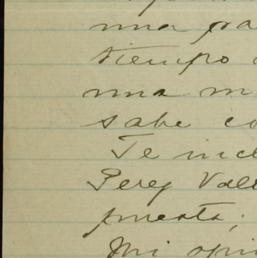 una
tiempo
una
sabe
Te incl
Perez Vall
puesta,
Mi opin